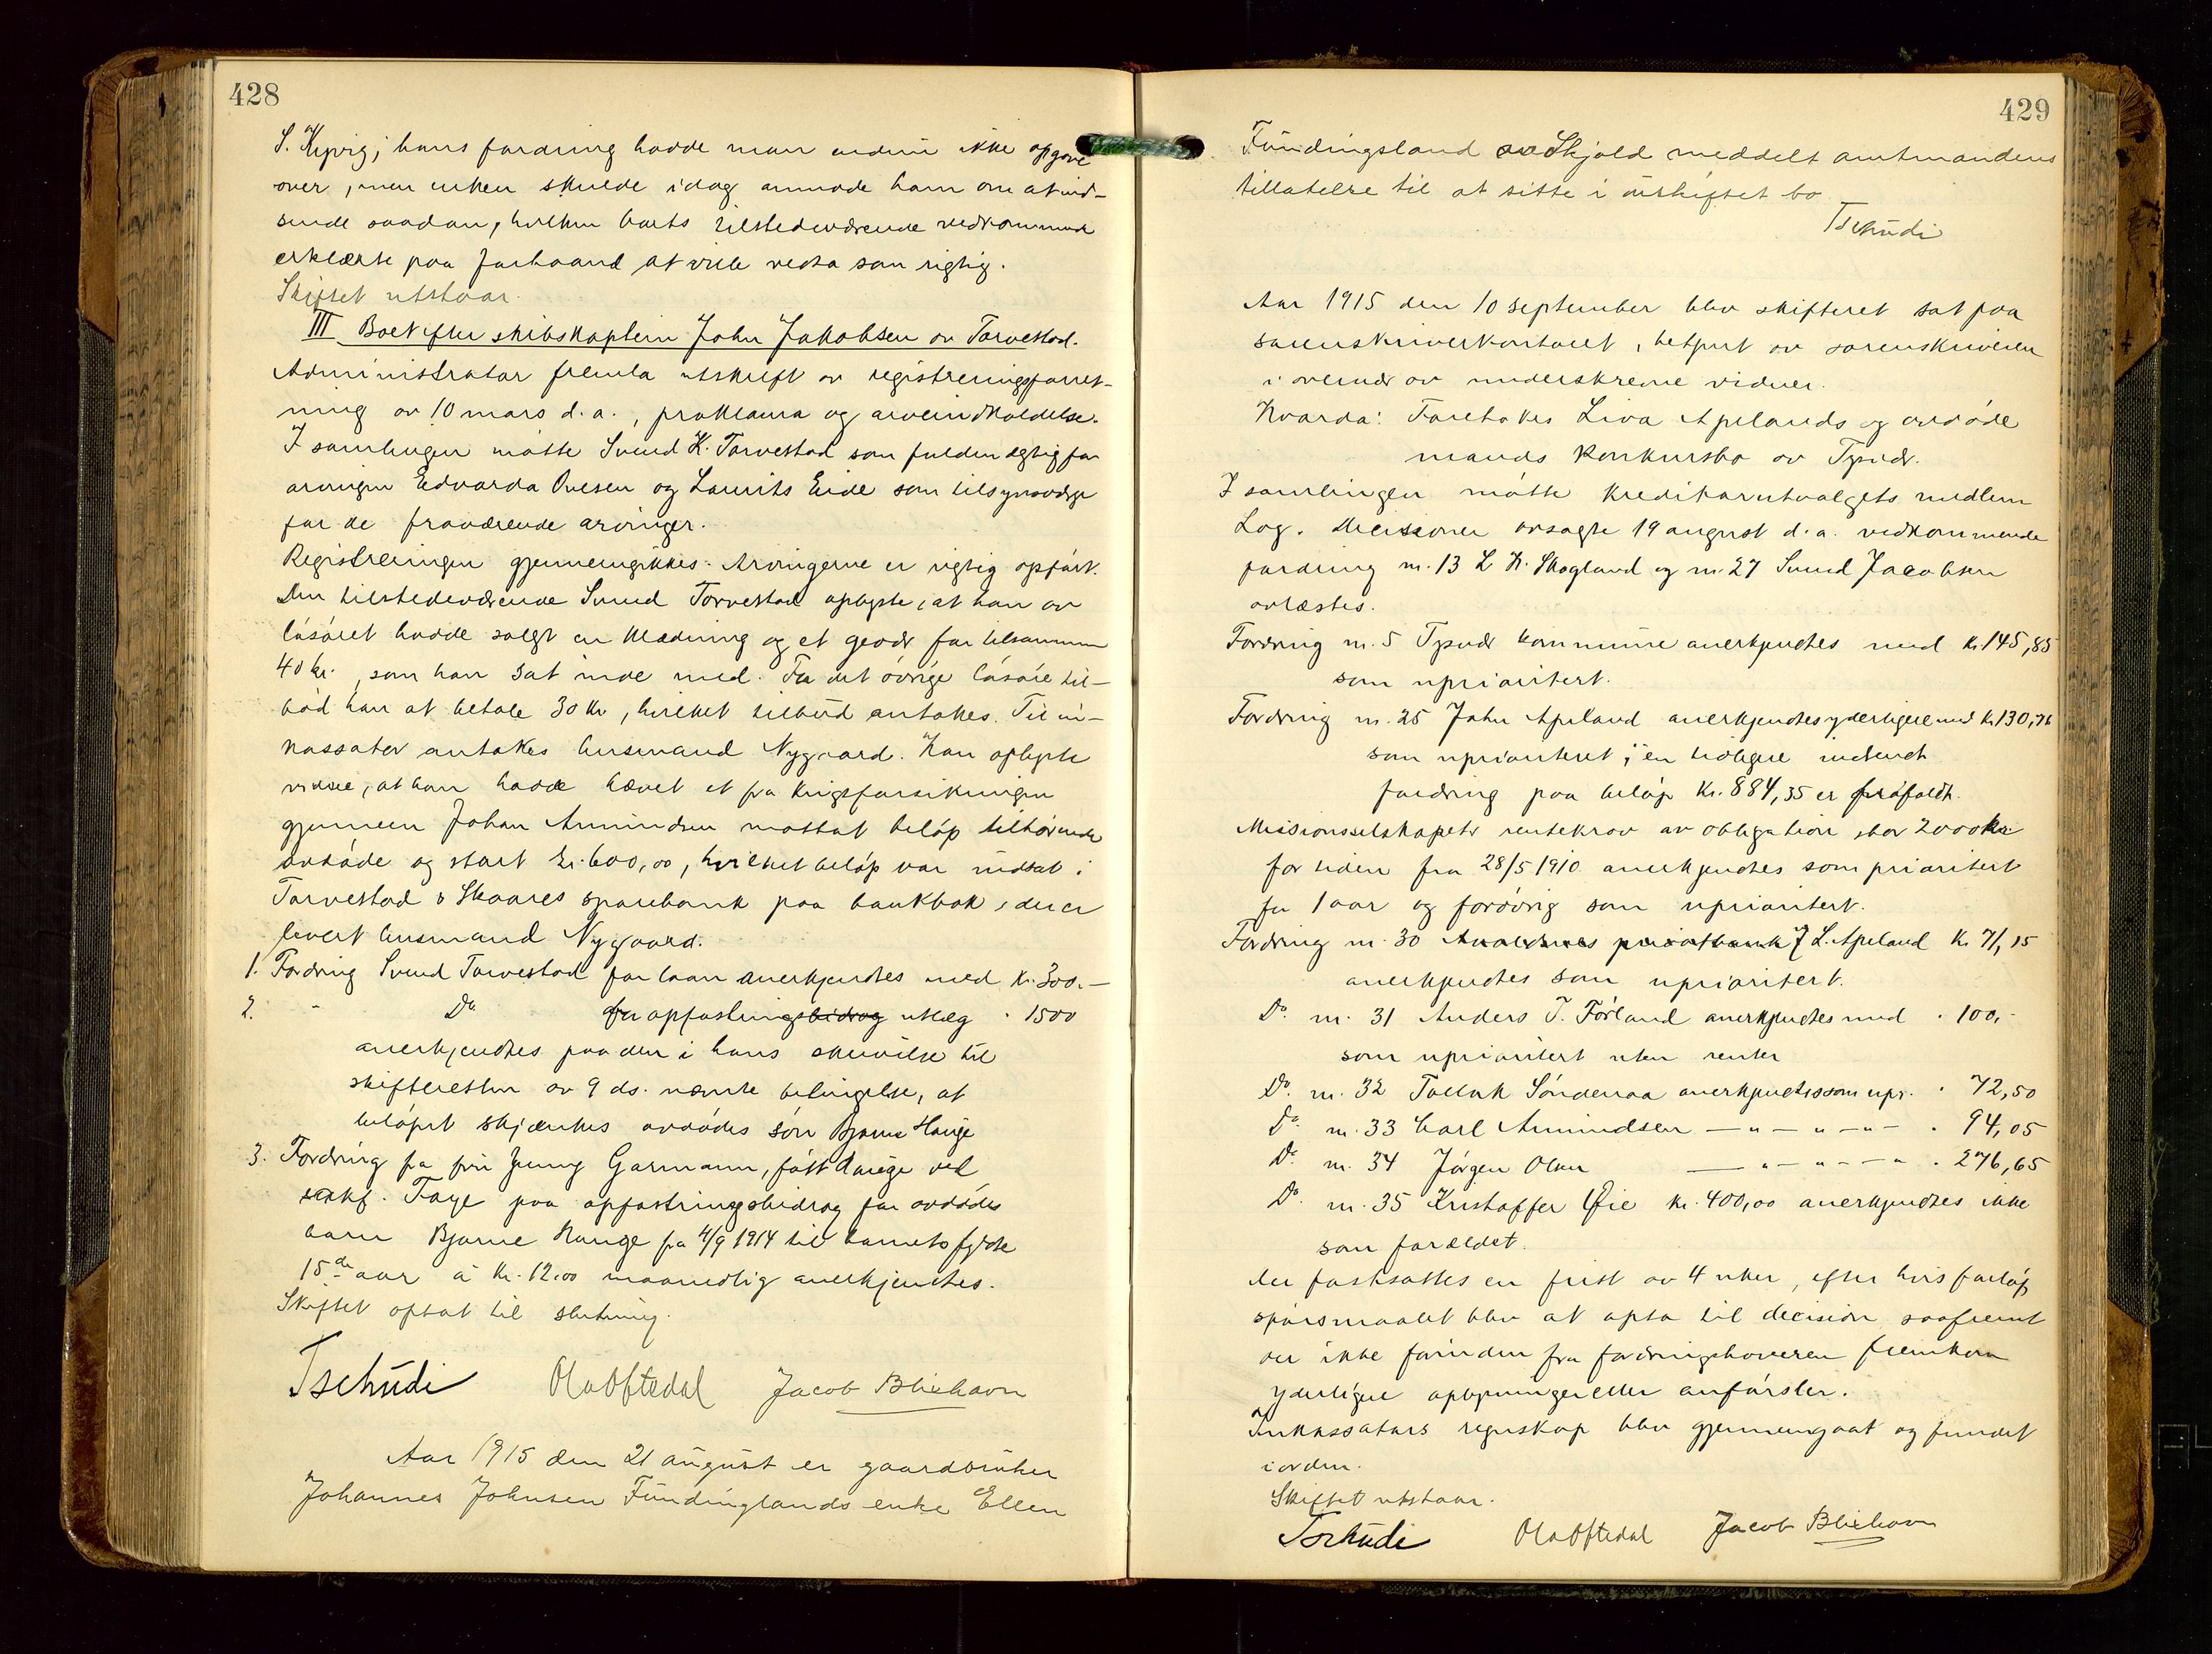 428
S. Kyvig; hans fordring hadde man endnu ikke opgave
over, men enken skulde idag anmode ham om at ind-
sende saadan, hvilken boets tilstedeværende vedkommende
erklærte paa forhaand at ville vedta som rigtig.
Skiftet utstaar.
III Boet efter skibskaptein John Jakobsen av Torvestad.
Administrator fremla utskrift av registreringsforret-
ning av 10 mars d.a., proklama og arveindkaldelse.
I samlingen møtte Svend K. Torvestad som fuldmægtig for
arvingen Edvarda Ovesen og Laurits Eide som tilsynsværge
for de fraværende arvinger.
Registreringen gjennemgikkes. Arvingerne er rigtig opført.
Den tilstedeværende Svend Torvestad oplyste, at han av
løsøret hadde solgt en klædning og et gevær for tilsammen
40 kr., som han sat inde med. For det øvrige løsøre til-
bød han at betale 30 Kr, hvilket tilbud antokes. Til in-
kassator antokes lensmand Nygaard. Han oplyste
videre, at han hadde hævet et fra Krigsforsikringen
gjennem Johan Amundsen mottat beløp tilhørende
avdøde og stort kr. 600,00, hvilket beløp var indsat i
Torvestad & Skaares sparebank paa bankbok, der er
levert lensmand Nygaard.
1. Fordring Svend Torvestad for laan anerkjendtes med Kr. 300.-
2. - Do. for opfostringsbidrag utlæg " 1500
anerkjendtes paa den i hans skrivelse til
skifteretten av 9 ds. nævnte betingelse, at
beløpet skjænkes avdødes søn Bjarne Hauge
3. Fordring fra fru Jenny Garmann, født Hauge ved
sakf. Faye paa opfostringsbidrag for avdødes
barn Bjarne Hauge fra 4/9 1914 til barnets fyldte
15de aar à Kr. 12.00 maanedlig anerkjendtes.
Skiftet optat til slutning.
Tschudi Ola Oftedal Jacob Blixhavn
Aar 1915 den 21 august er gaardbruker
Johannes Johnsen Fundinglands enke Ellen
429
Fundingsland av Skjold meddelt amtmandens
tillatelse til at sitte i uskiftet bo
Tschudi
Aar 1915 den 10 september blev skifteret sat paa
sorenskriverkontoret, betjent av sorenskriveren
i overvær av underskrevne vidner.
Hvorda: Foretokes Liva Apelands og avdøde
mands konkursbo av Tysvær.
I samlingen møtte kreditorutvalgets medlem
Log. Decisioner avsagte 19 august d.a. vedkommende
fordring nr. 13 L. K. Skogland og nr. 27 Svend Jacobsen
avlæstes.
Fordring nr. 5 Tysvær kommune anerkjendtes med Kr. 145,85
som uprioritert.
Fordring nr. 25 John Apeland anerkjendtes yderligere med Kr. 130,76
som uprioriteret; en tidligere indsendt
fordring paa beløp Kr. 884,35 er frafaldt.
Missionsselskapets rentekrav av obligation stor 2000 kr
for tiden fra 28/5 1910 anerkjendtes som prioritert
for 1 aar og forøvrig som uprioritert.
Fordring nr. 30 Avaldsnes privatbank J L. Apeland Kr. 71,15
anerkjendtes som uprioritert.
Do. nr. 31 Anders T. Førland anerkjendtes med " 100,-
som uprioritert uten renter
Do. nr. 32 Tollak Søndenaa anerkjendtes som upr. " 72,50
Do. nr. 33 Carl Amundsen — " — " — " — " 94,05
Do. nr. 34 Jørgen Olsen — " — " — " " 276,65
Do. nr. 35 Kristoffer Øie kr. 400,00 anerkjendtes ikke
som forældet.
Der fastsattes en frist av 4 uker, efter hvis forløp
spørsmaalet blev at opta til decision saafremt
der ikke forinden fra fordringshaveren fremkom
yderligere oplysninger eller anførsler.
Inkassators regnskap blev gjennemgaat og fundet
i orden.
Skiftet utstaar.
Tschudi Ola Oftedal Jacob Blixhavn